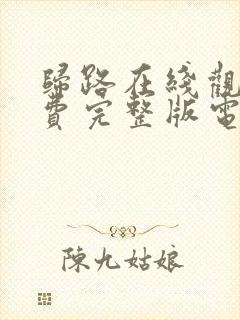 歸路在綫觀
費完整版電
陳九姑娘